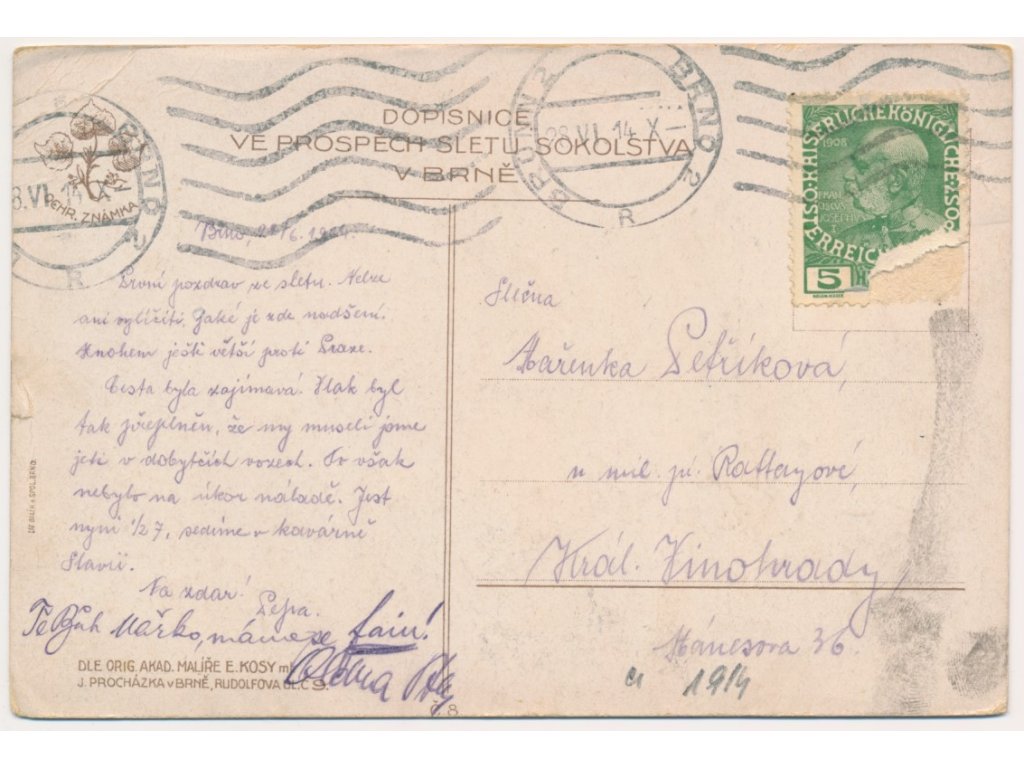 DOPISNICE
VE PROSPĚCH SLETU SOKOLSTVA
V BRNĚ
OCHR. ZNÁMKA
BRNO 2
28.VI.14 X
BRÜNN 2
BRNO 2
28.VI.14 X
R
R
KAISERLICHE KÖNIGLICHE
ÖSTERREICH
1908
5
Brno, 28/6. 1914.
První pozdrav ze sletu. Nelze
ani vylíčiti, jaké je zde nadšení.
Mnohem ještě větší proti Praze.
Cesta byla zajímavá. Vlak byl
tak přeplněn, že my museli jsme
jeti v dobytčích vozech. To však
nebylo na úkor náladě. Jest
nyní 1/2 7, sedíme v kavárně
Slavii.
Na zdar!
Pepa.
Mařko, máme se fain!
DLE ORIG. AKAD. MALÍŘE E. KOSY
J. PROCHÁZKA v BRNĚ, RUDOLFOVA UL. Č 9.
Č. 8
Slečna
Mařenka Petříková,
u mil. pí. Rattayové,
Král. Vinohrady,
Mánesova 36.
1914